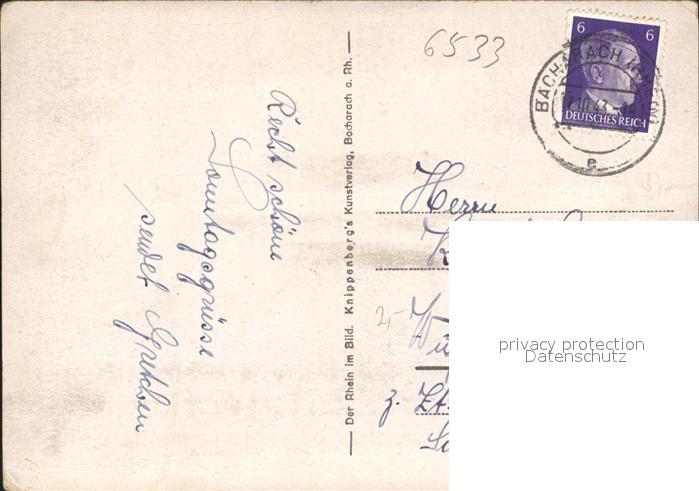 6533
6 6
DEUTSCHES REICH
BACHARACH
Recht schöne
Sonntagsgrüsse
sendet Gretchen
Der Rhein im Bild. Knippenberg's Kunstverlag, Bacharach a. Rh.
Herrn
2,-
z. Zt.
privacy protection
Datenschutz